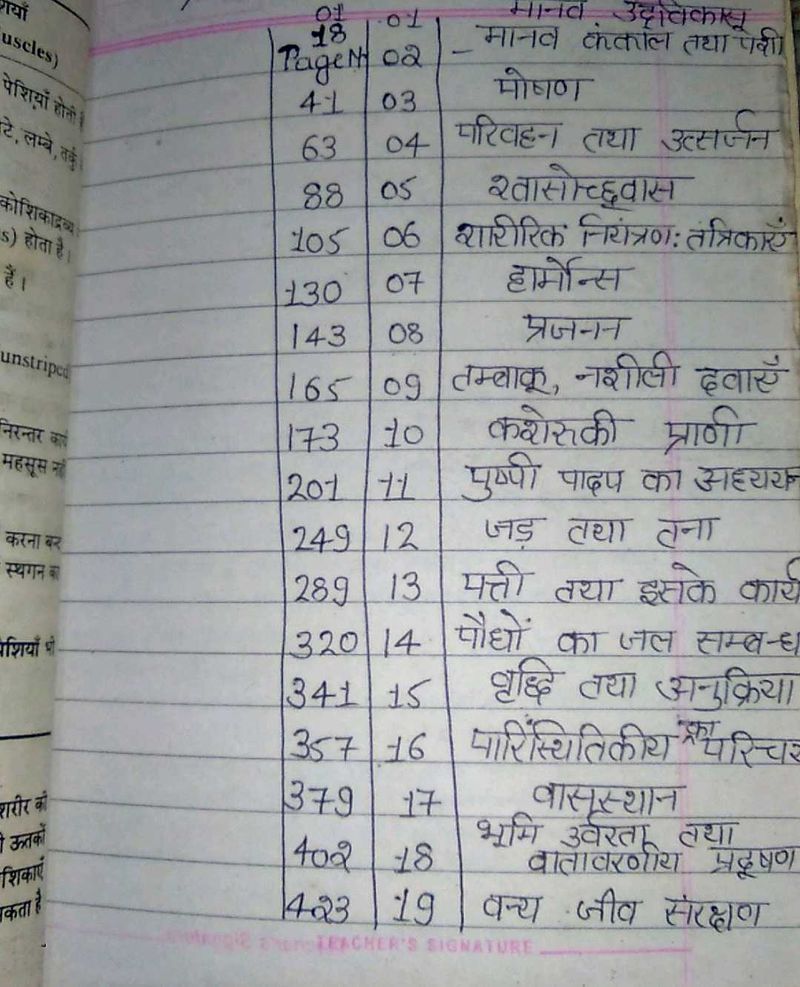 याँ
uscles)
पेशियाँ होती
टे, लम्बे,
कोशिकाद्रव्य
s) होता है।
हैं।
unstriped
निरन्तर
महसूस
करना
स्थगन
शियाँ भी
शरीर की
ऊतकों
शिकाएँ
कता है
01 01 मानव उद्दविकास
18
Page No 02 – मानव कंकाल तथा पेशी
41 03 पोषण
63 04 परिवहन तथा उत्सर्जन
88 05 श्वासोच्छ्वास
105 06 शारीरिक नियंत्रण: तंत्रिकाएँ
130 07 हार्मोन्स
143 08 प्रजनन
165 09 तम्बाकू, नशीली दवाएँ
173 10 कशेरुकी प्राणी
201 11 पुष्पी पादप का अध्ययन
249 12 जड़ तथा तना
289 13 पत्ती तथा इसके कार्य
320 14 पौधों का जल सम्बन्ध
341 15 वृद्धि तथा अनुक्रिया
357 16 पारिस्थितिकीय का परिचय
379 17 वासस्थान
402 18 भूमि उर्वरता तथा
वातावरणीय प्रदूषण
423 19 वन्य जीव संरक्षण
TEACHER'S SIGNATURE